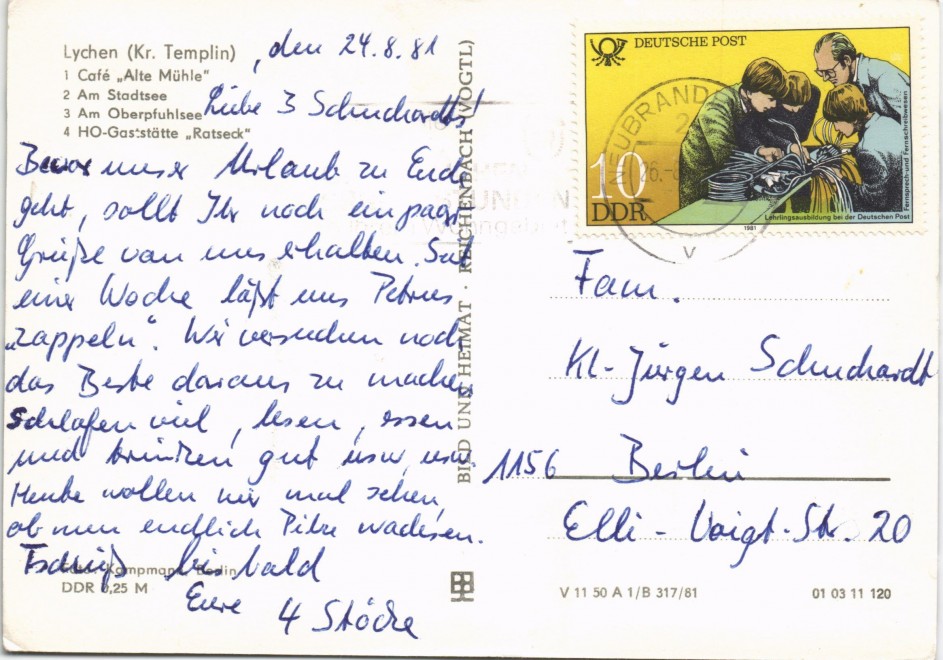 Lychen (Kr. Templin)
1 Café „Alte Mühle"
2 Am Stadtsee
3 Am Oberpfuhlsee
4 HO-Gaststätte „Ratseck"
, den 24.8.81
Liebe 3 Schuchardts!
Bevor unser Urlaub zu Ende
geht, sollt Ihr noch ein paar
Grüße von uns erhalten. Seit
einer Woche läßt uns Petrus
„zappeln". Wir versuchen noch
das Beste daraus zu machen,
schlafen viel, lesen, essen
und trinken gut usw, usw.
Heute wollen wir mal sehen,
ob nun endlich Pilze wachsen.
Tschüß bis bald
Eure
4 Stöcke
Foto: Kampmann, Berlin
DDR 0,25 M
BILD UND HEIMAT · REICHENBACH (VOGTL)
DEUTSCHE POST
10
DDR
Lehrlingsausbildung bei der Deutschen Post
Fernsprech- und Fernschreibwesen
1981
NEUBRAND
26.
v
Fam.
Kl-Jürgen Schuchardt
1156 Berlin
Elli-Voigt-Str. 20
V 11 50 A 1/B 317/81
01 03 11 120